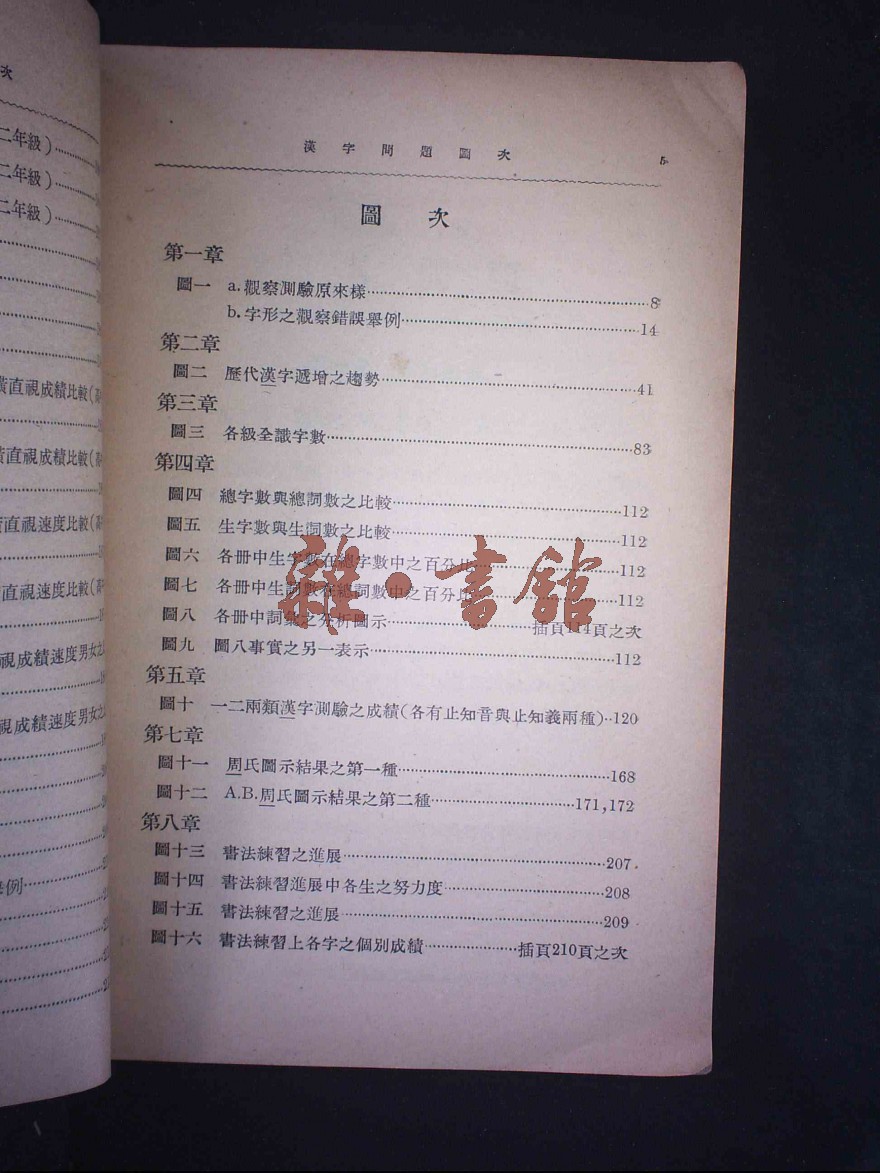 次
二年級)
二年級)
二年級)
橫直視成績比較(高
橫直視成績比較(高
直視速度比較(高
直視速度比較(高
視成績速度男女之
視成績速度男女之
舉例
漢字問題圖次 5
圖次
第一章
圖一 a.觀察測驗原來樣……8
b.字形之觀察錯誤舉例……14
第二章
圖二 歷代漢字遞增之趨勢……41
第三章
圖三 各級全識字數……83
第四章
圖四 總字數與總詞數之比較……112
圖五 生字數與生詞數之比較……112
圖六 各册中生字數在總字數中之百分比……112
圖七 各册中生詞數在總詞數中之百分比……112
圖八 各册中詞彙之分析圖示……插頁114頁之次
圖九 圖八事實之另一表示……112
第五章
圖十 一二兩類漢字測驗之成績(各有止知音與止知義兩種)..120
第七章
圖十一 周氏圖示結果之第一種……168
圖十二 A.B.周氏圖示結果之第二種……171,172
第八章
圖十三 書法練習之進展……207
圖十四 書法練習進展中各生之努力度……208
圖十五 書法練習之進展……209
圖十六 書法練習上各字之個別成績……插頁210頁之次
雜·書館